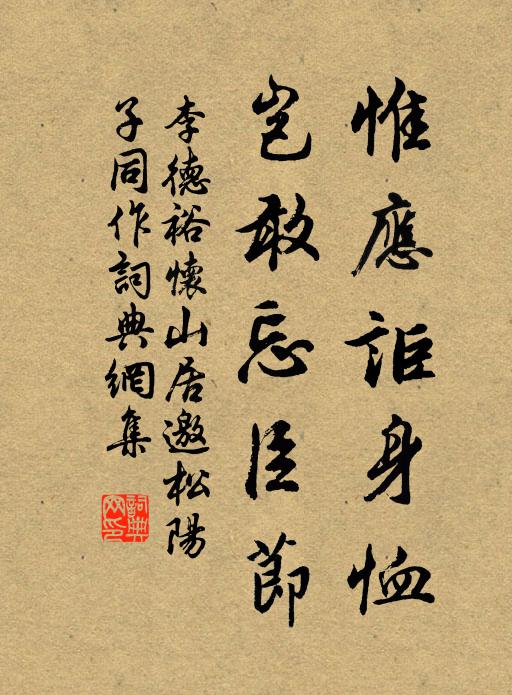 惟應詎身恤
豈敢忘臣節
李德裕懷山居邀松陽
子同作詞典網集
詞典網印